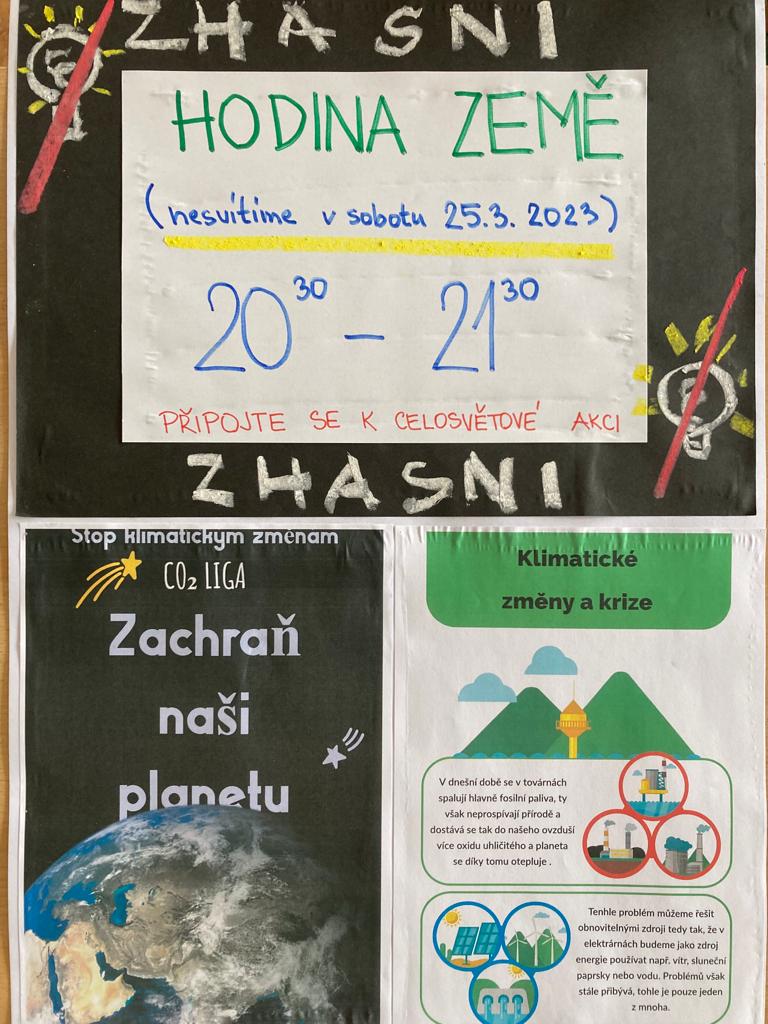 ZHASNI
HODINA ZEMĚ
(nesvítíme v sobotu 25.3. 2023)
20³⁰ – 21³⁰
PŘIPOJTE SE K CELOSVĚTOVÉ AKCI
ZHASNI
Stop klimatickým změnám
CO₂ LIGA
Zachraň
naši
planetu
Klimatické
změny a krize
V dnešní době se v továrnách
spalují hlavně fosilní paliva, ty
však neprospívají přírodě a
dostává se tak do našeho ovzduší
více oxidu uhličitého a planeta
se díky tomu otepluje .
Tenhle problém můžeme řešit
obnovitelnými zdroji tedy tak, že v
elektrárnách budeme jako zdroj
energie používat např. vítr, sluneční
paprsky nebo vodu. Problémů však
stále přibývá, tohle je pouze jeden
z mnoha.